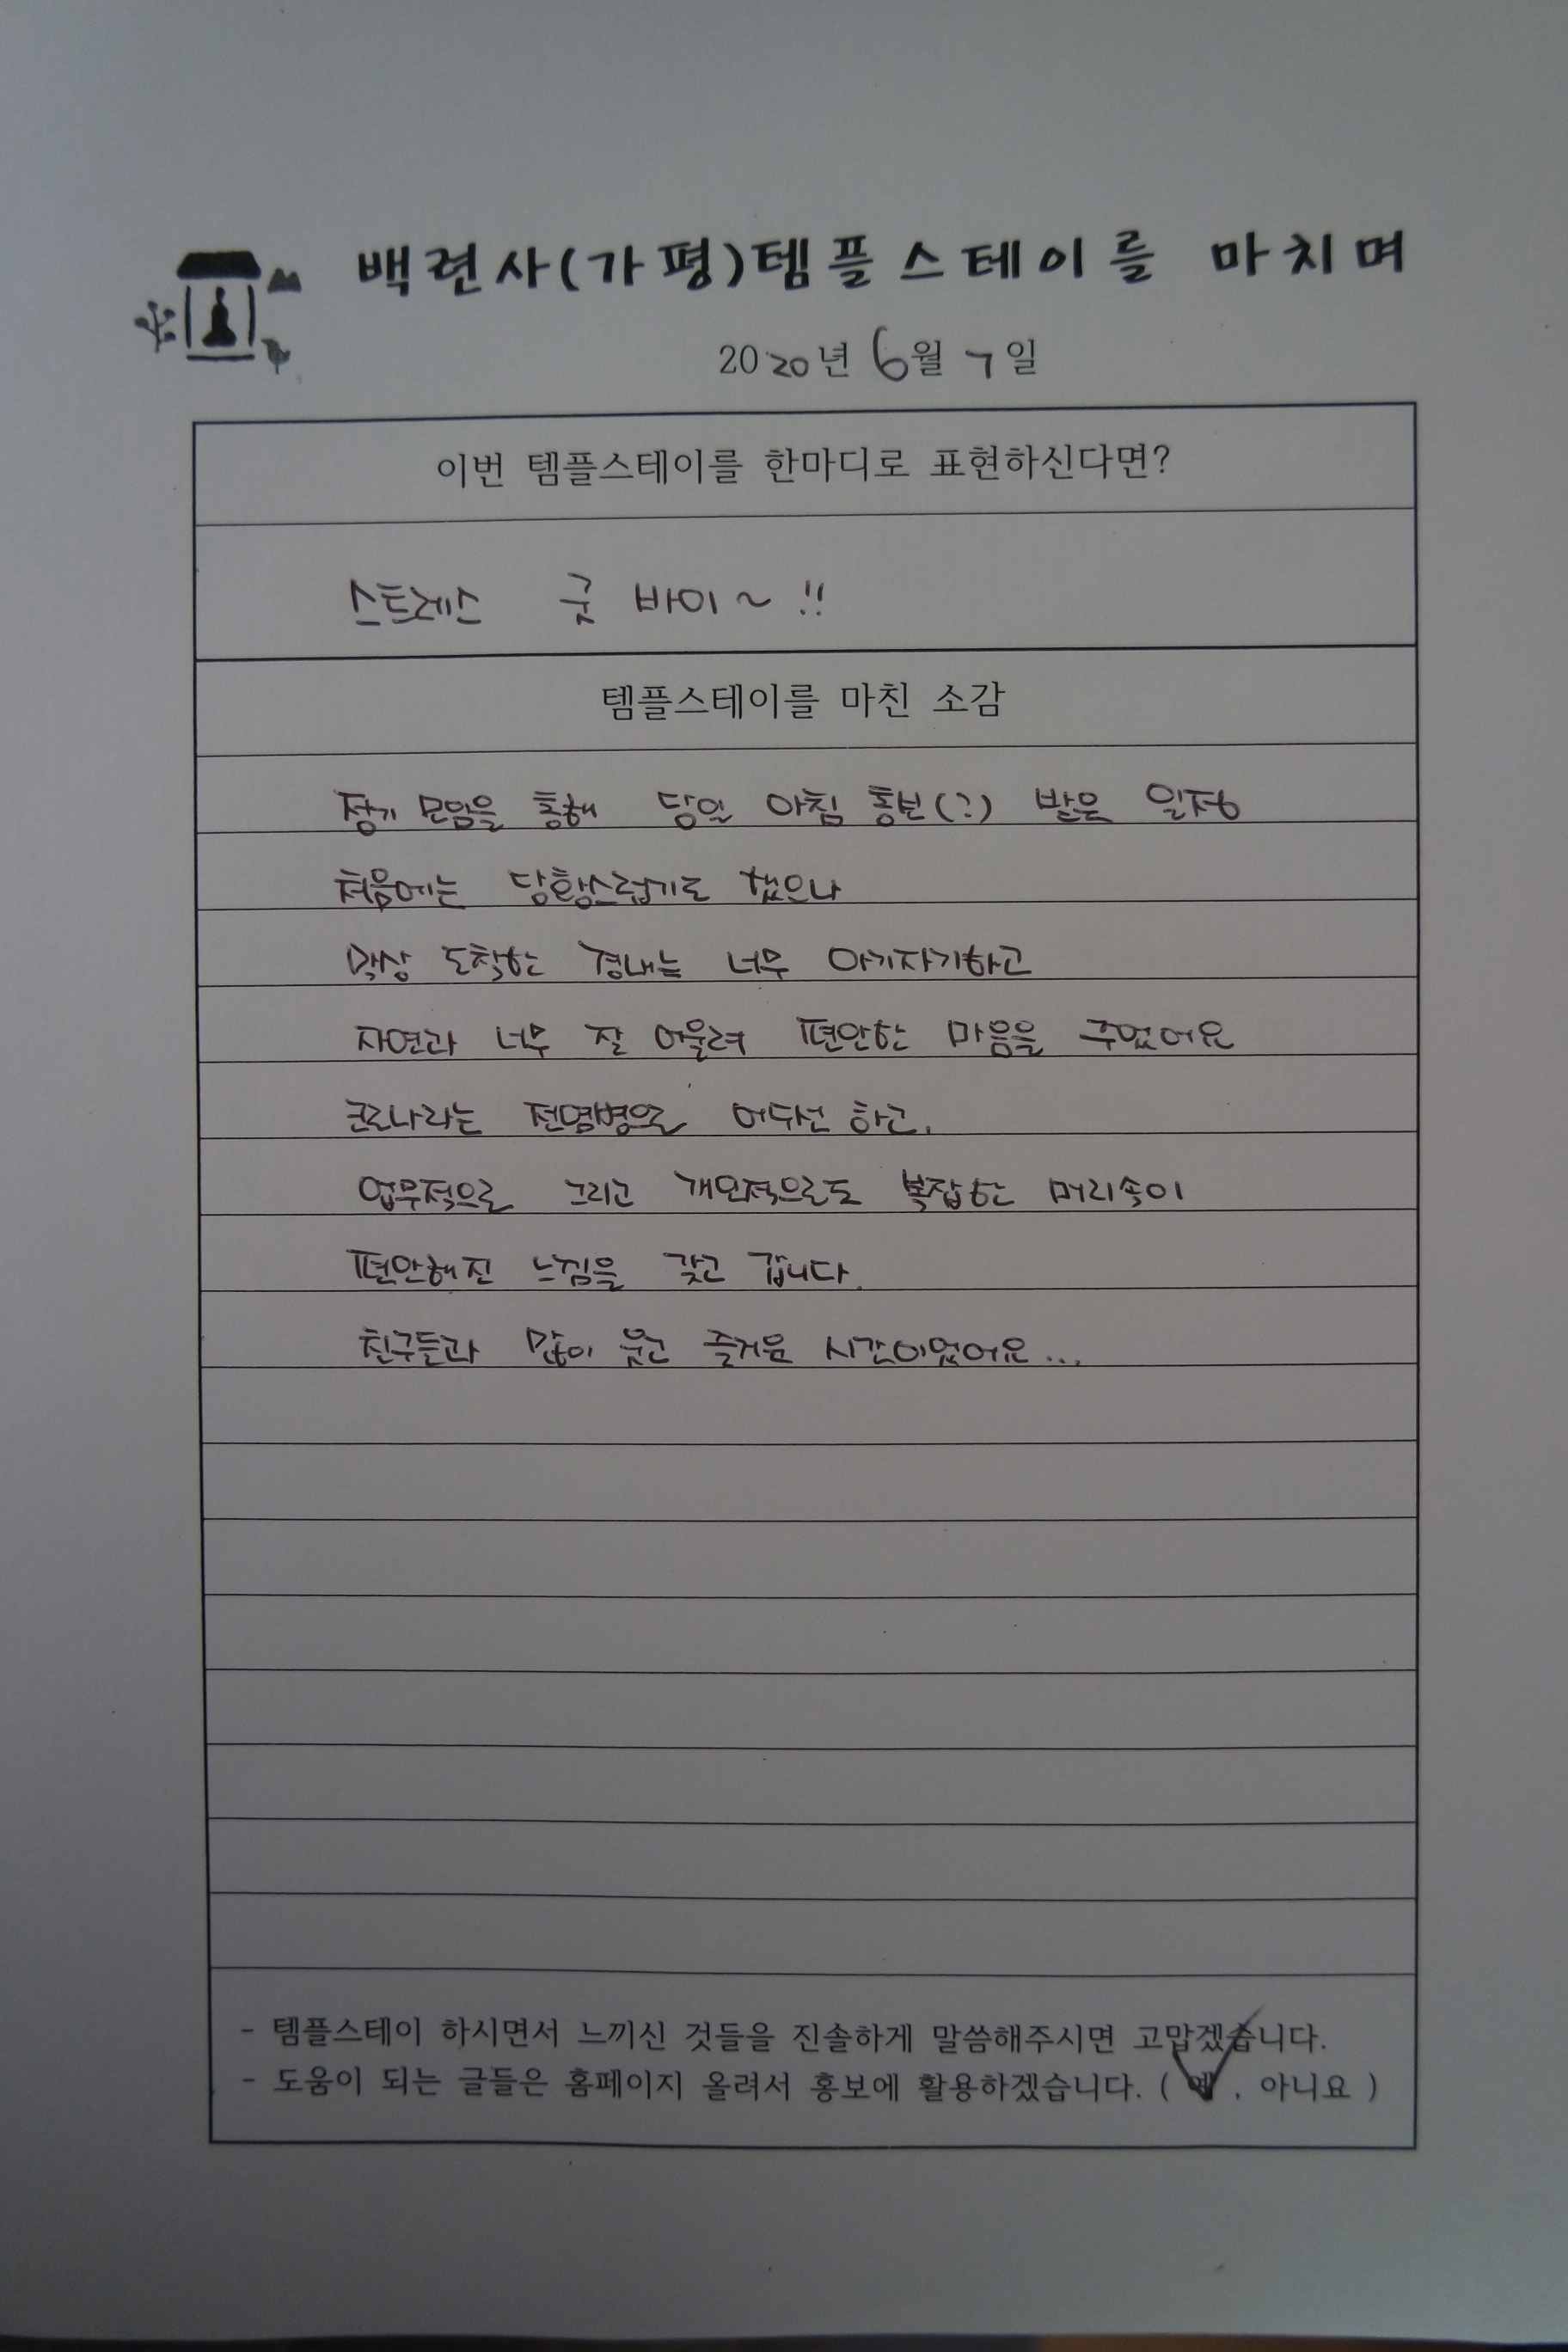 백련사(가평)템플스테이를 마치며
2020년 6월 7일
이번 템플스테이를 한마디로 표현하신다면?
스트레스 굿 바이~!!
템플스테이를 마친 소감
정기 모임을 통해 당일 아침 통보(?) 받은 일정
처음에는 당황스럽기도 했으나
막상 도착한 경내는 너무 아기자기하고
자연과 너무 잘 어울려 편안한 마음을 주었어요
코로나라는 전염병으로 어수선 하고,
업무적으로 그리고 개인적으로도 복잡한 머리속이
편안해진 느낌을 갖고 갑니다.
친구들과 많이 웃고 즐거운 시간이었어요...
- 템플스테이 하시면서 느끼신 것들을 진솔하게 말씀해주시면 고맙겠습니다.
- 도움이 되는 글들은 홈페이지 올려서 홍보에 활용하겠습니다. ( 예 , 아니요 )